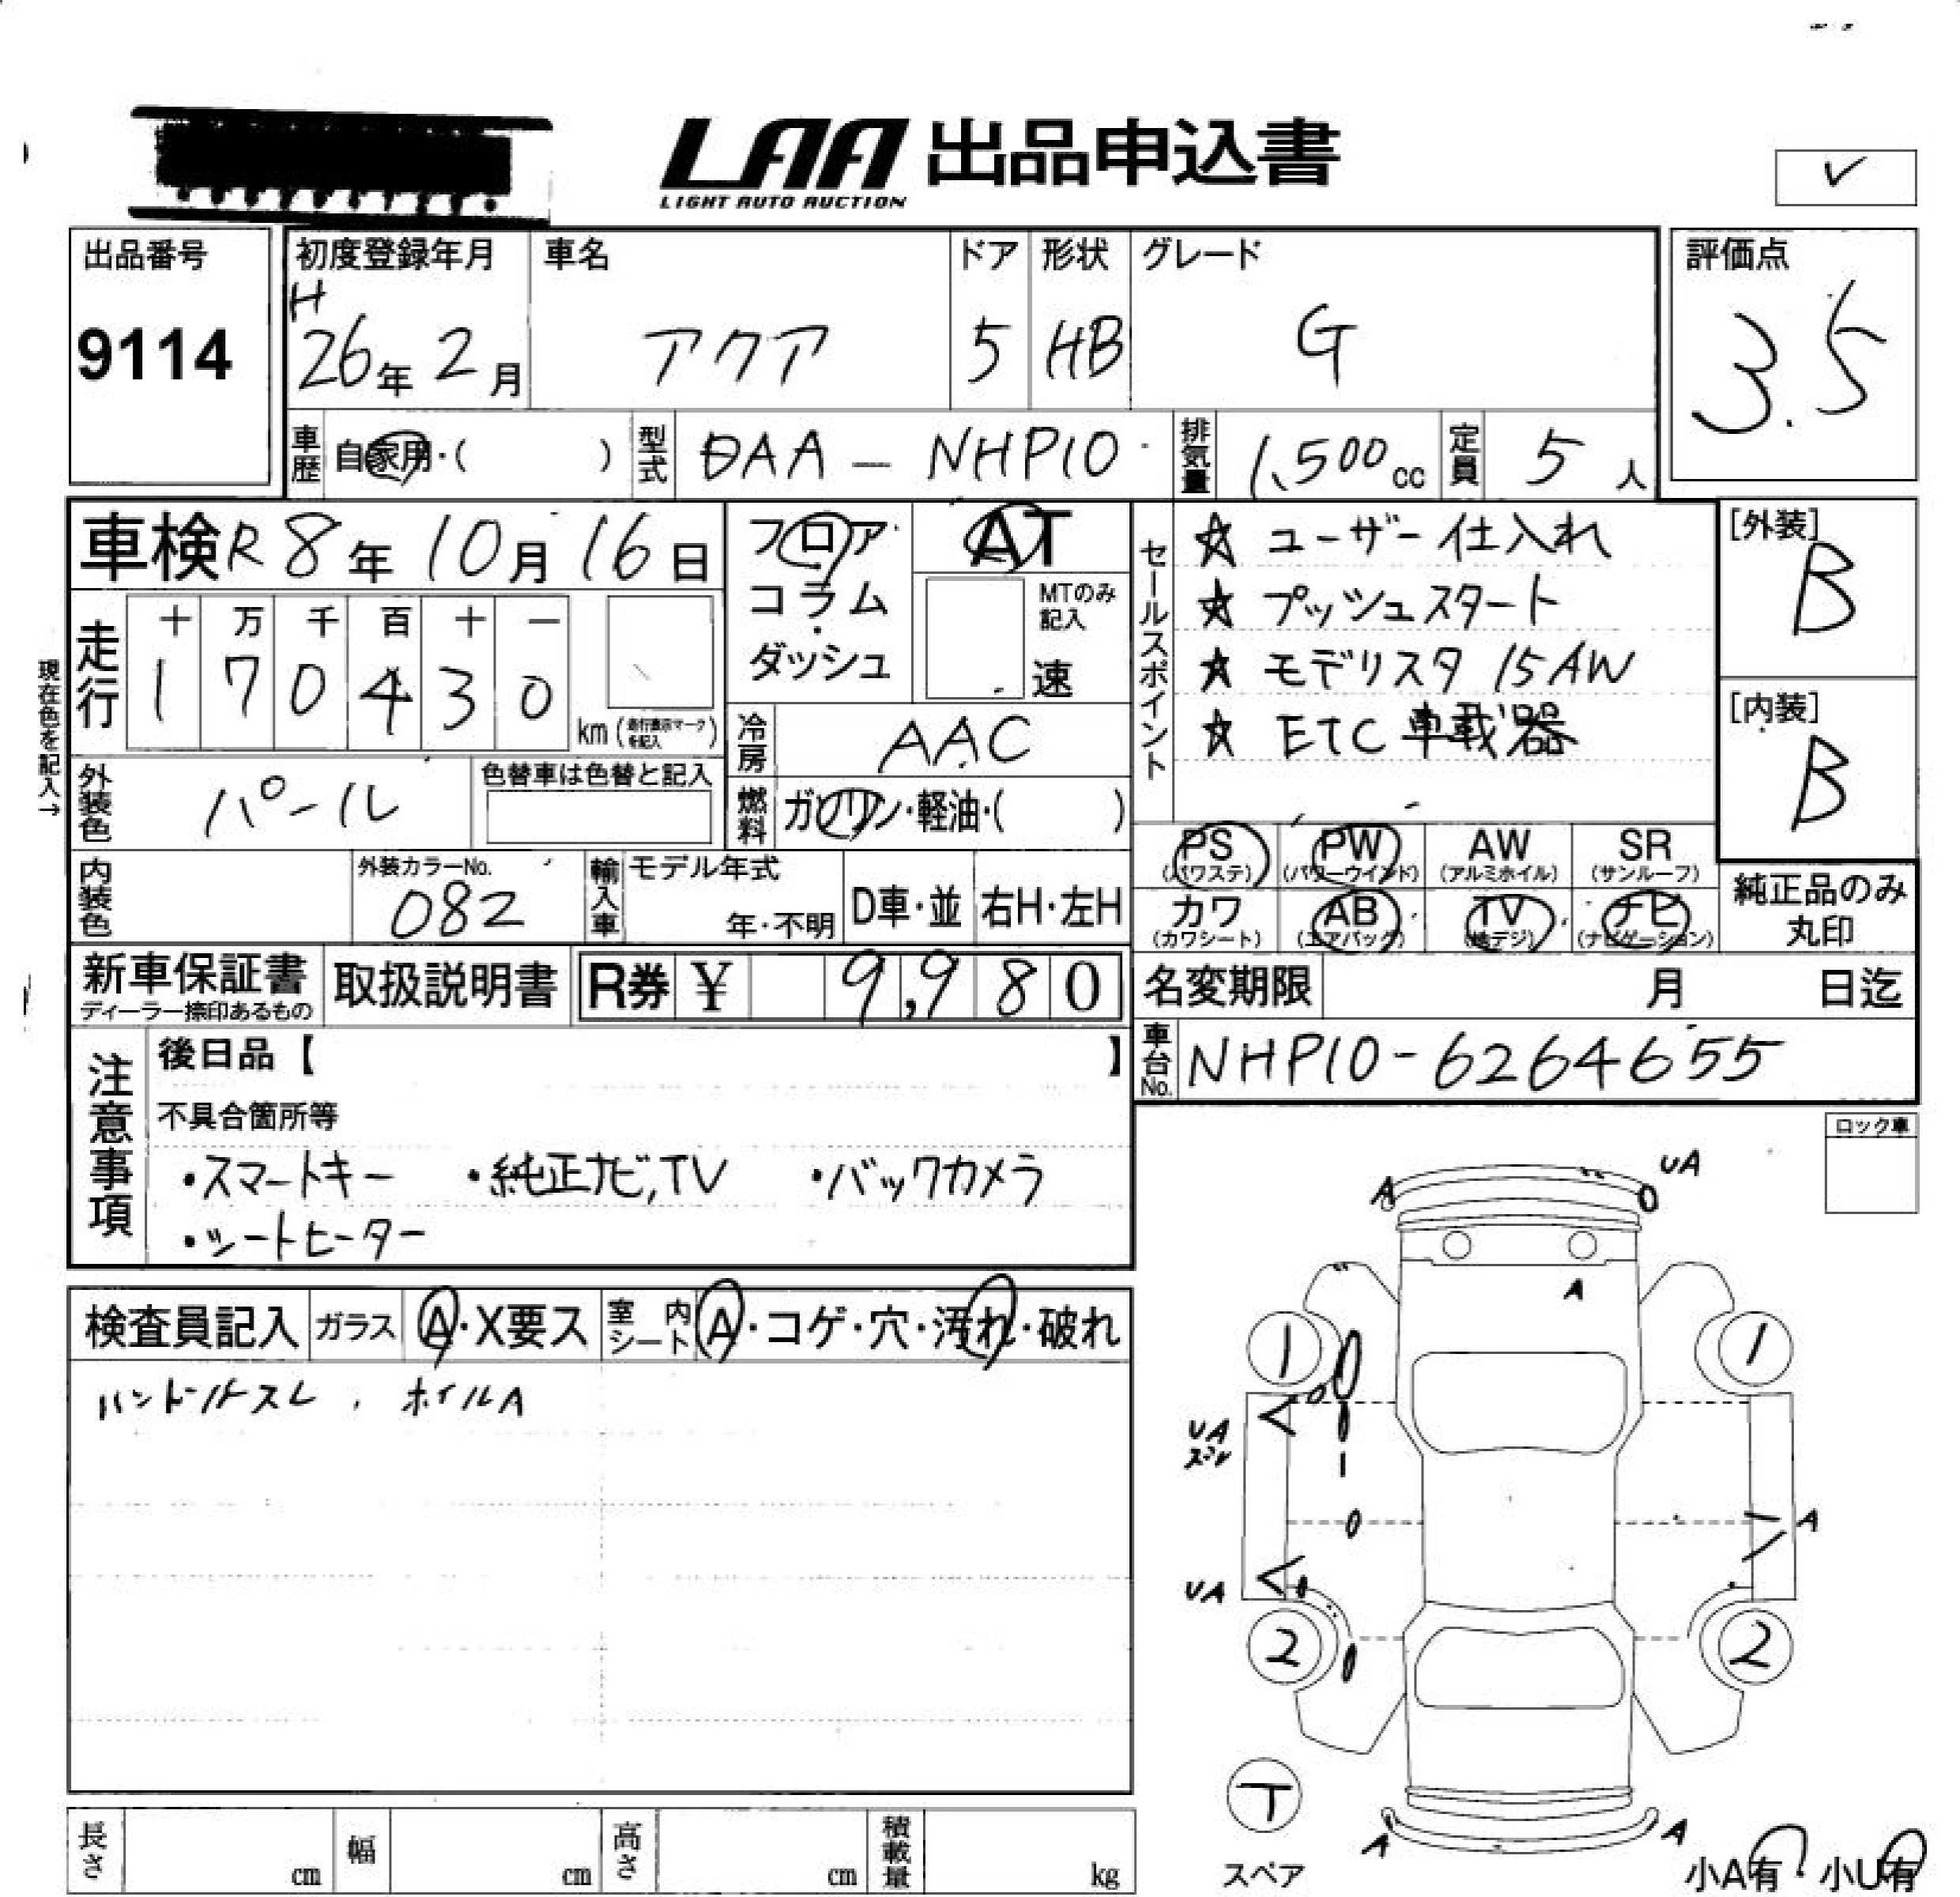 LAA 出品申込書
LIGHT AUTO AUCTION
出品番号
9114
初度登録年月
H
26年 2月
車名
アクア
ドア
5
形状
HB
グレード
G
評価点
3.5
車歴 自家用・( )
型式 DAA-NHP10
排気量 1,500cc
定員 5人
車検 R8年 10月 16日
フロア・
コラム・
ダッシュ
AT
MTのみ記入
速
セールスポイント
☆ ユーザー仕入れ
☆ プッシュスタート
☆ モデリスタ 15AW
☆ ETC 車載器
[外装]
B
[内装]
B
現在色を記入→
走行
十 万 千 百 十 一
1 7 0 4 3 0
km(走行表示マークを記入)
冷房 AAC
外装色 パール
色替車は色替と記入
燃料 ガソリン・軽油・( )
PS (パワステ)
PW (パワーウインド)
AW (アルミホイル)
SR (サンルーフ)
カワ (カワシート)
AB (エアバッグ)
TV (地デジ)
ナビ (ナビゲーション)
純正品のみ
丸印
内装色
外装カラーNo.
082
輸入車
モデル年式
年・不明
D車・並
右H・左H
新車保証書
ディーラー捺印あるもの
取扱説明書
R券 ¥ 9,980
名変期限 月 日迄
車台No. NHP10-6264655
注意事項
後日品【 】
不具合箇所等
・スマートキー ・純正ナビ,TV ・バックカメラ
・シートヒーター
ロック車
検査員記入
ガラス A・X要ス
室内シート A・コゲ・穴・汚れ・破れ
ハンドルスレ、ホイルA
A
UA
A
1
1
UA
A
UA
2
2
T
スペア
A
A
小A有・小U有
長さ cm
幅 cm
高さ cm
積載量 kg